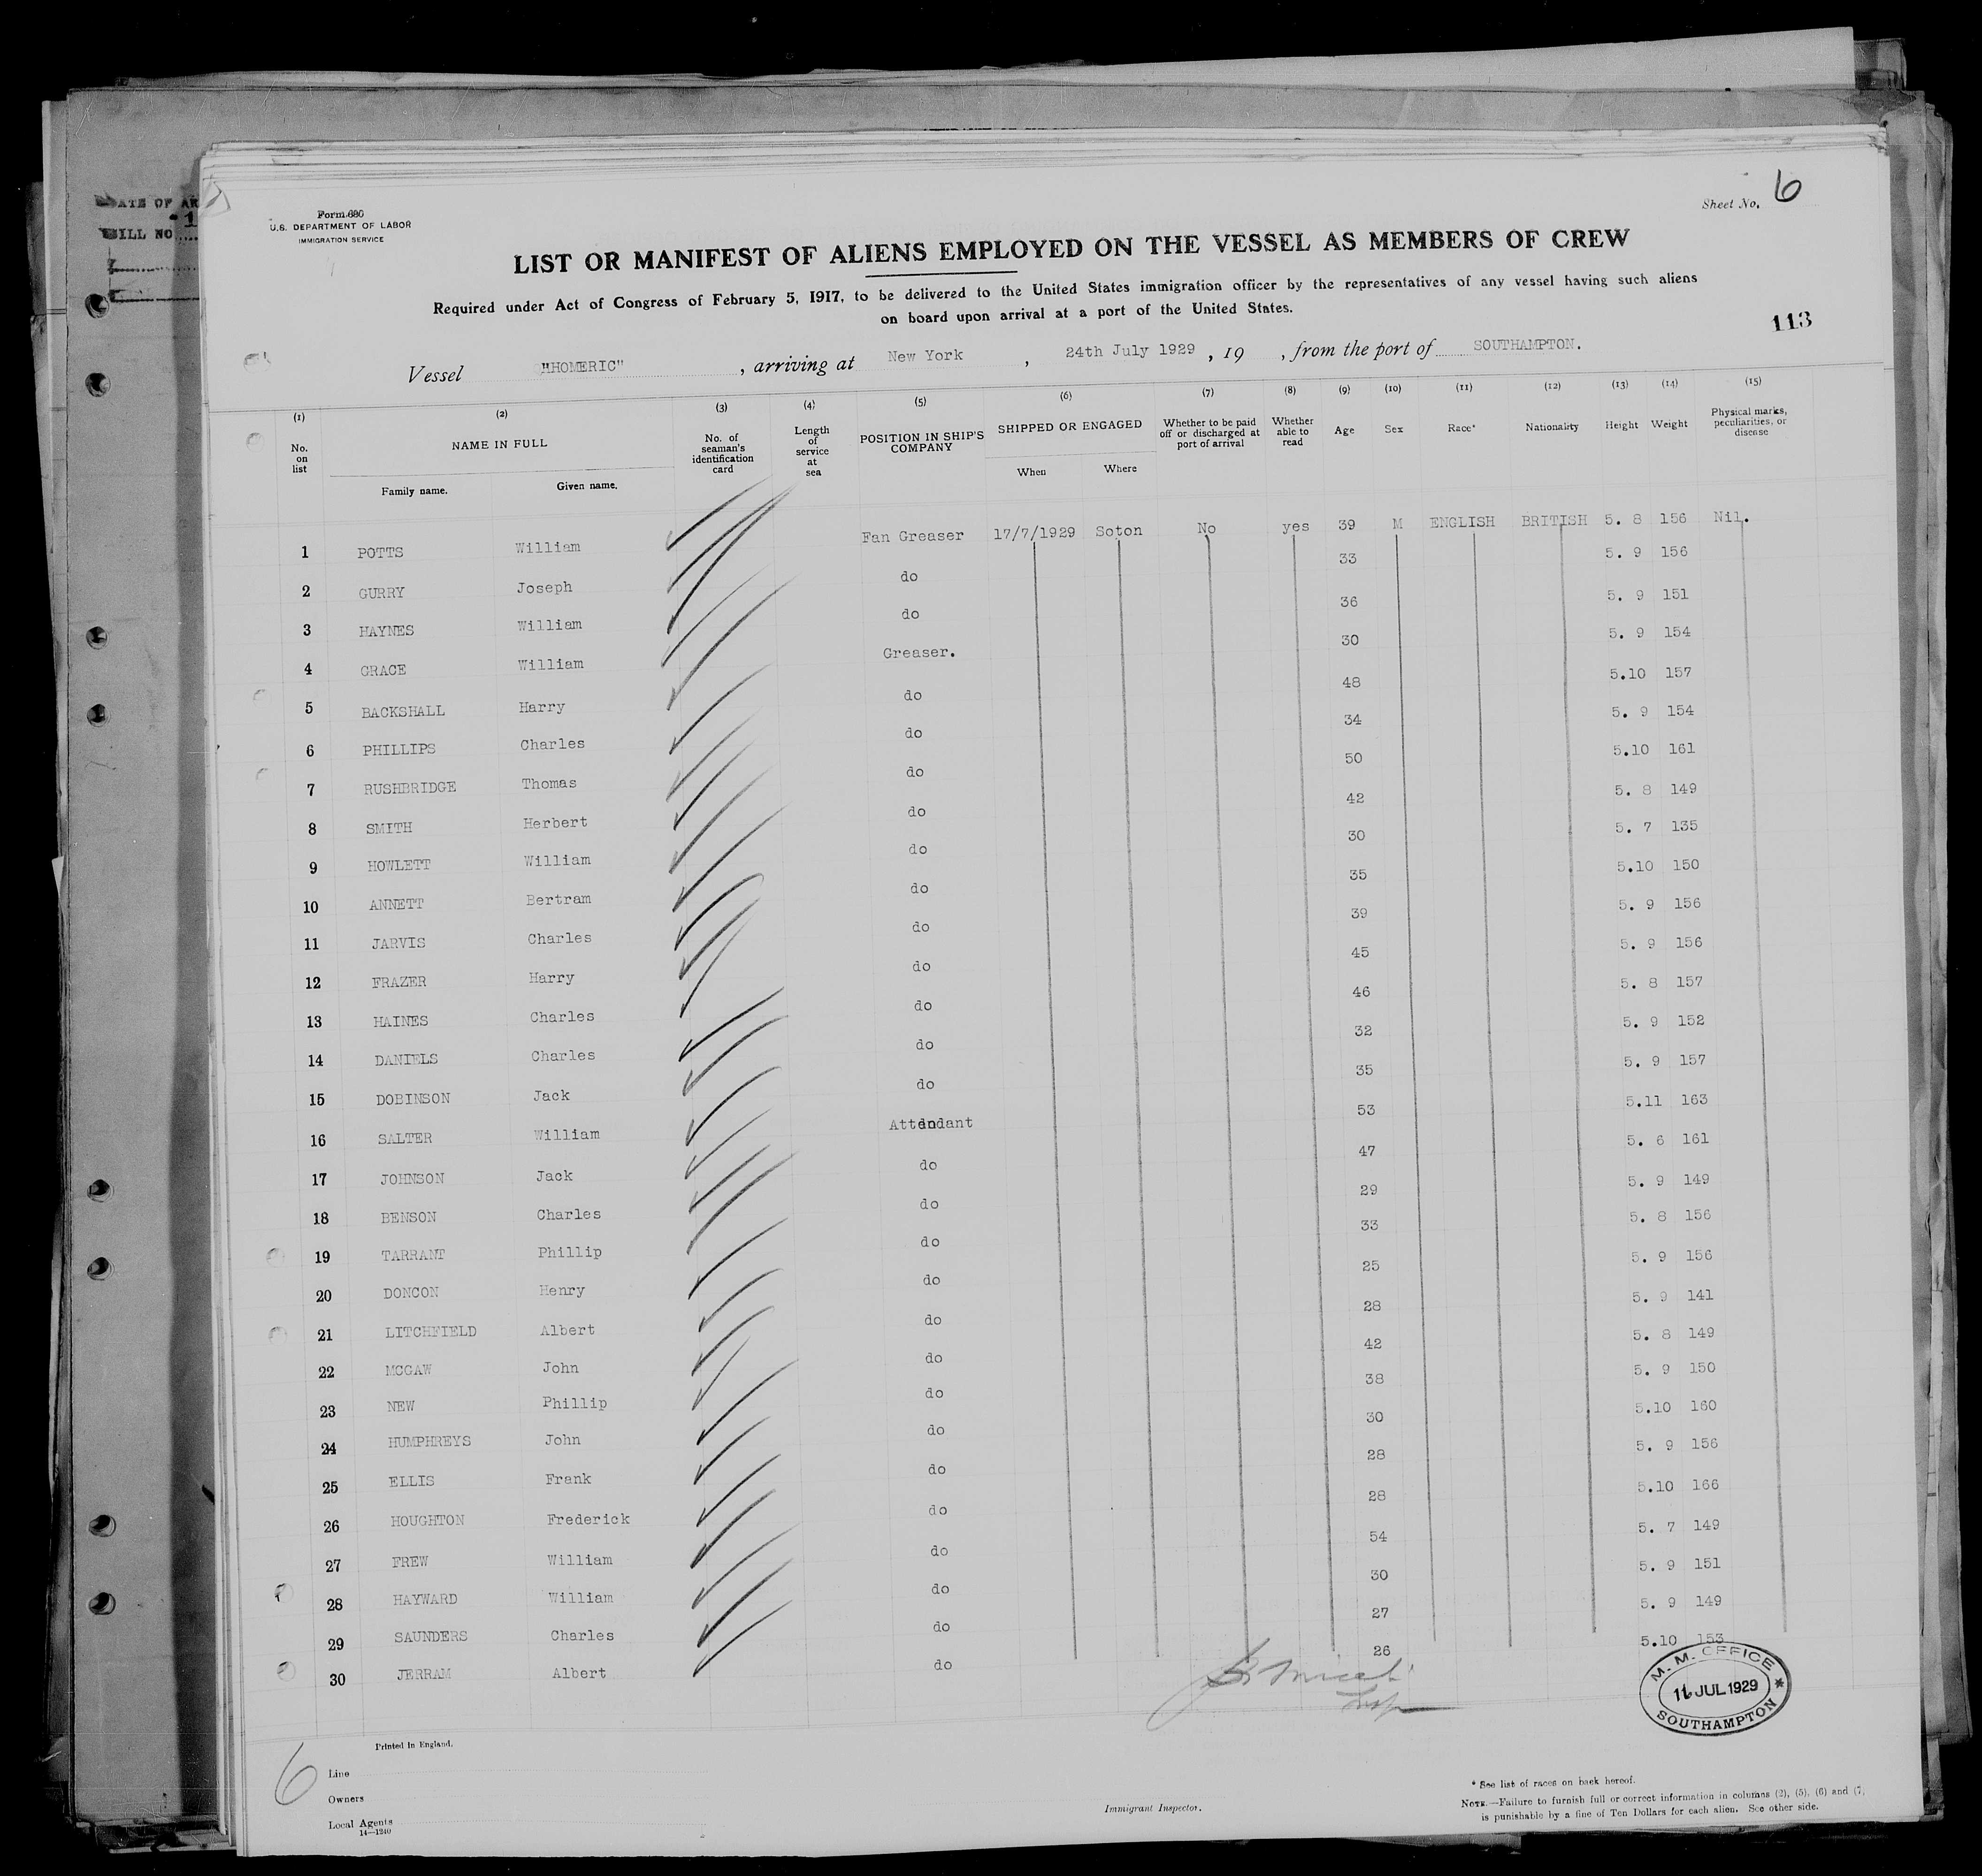 Form 680
U.S. DEPARTMENT OF LABOR
IMMIGRATION SERVICE
Sheet No. 6
LIST OR MANIFEST OF ALIENS EMPLOYED ON THE VESSEL AS MEMBERS OF CREW
Required under Act of Congress of February 5, 1917, to be delivered to the United States immigration officer by the representatives of any vessel having such aliens
on board upon arrival at a port of the United States.
113
Vessel "HOMERIC", arriving at New York, 24th July 1929, 19 , from the port of SOUTHAMPTON.
(1) (2) (3) (4) (5) (6) (7) (8) (9) (10) (11) (12) (13) (14) (15)
No. on list NAME IN FULL No. of seaman's identification card Length of service at sea POSITION IN SHIP'S COMPANY SHIPPED OR ENGAGED Whether to be paid off or discharged at port of arrival Whether able to read Age Sex Race* Nationality Height Weight Physical marks, peculiarities, or disease
Family name. Given name. When Where
1 POTTS William Fan Greaser 17/7/1929 Soton No yes 39 M ENGLISH BRITISH 5. 8 156 Nil.
2 GURRY Joseph do 33 5. 9 156
3 HAYNES William do 36 5. 9 151
4 GRACE William Greaser. 30 5. 9 154
5 BACKSHALL Harry do 48 5.10 157
6 PHILLIPS Charles do 34 5. 9 154
7 RUSHBRIDGE Thomas do 50 5.10 161
8 SMITH Herbert do 42 5. 8 149
9 HOWLETT William do 30 5. 7 135
10 ANNETT Bertram do 35 5.10 150
11 JARVIS Charles do 39 5. 9 156
12 FRAZER Harry do 45 5. 9 156
13 HAINES Charles do 46 5. 8 157
14 DANIELS Charles do 32 5. 9 152
15 DOBINSON Jack do 35 5. 9 157
16 SALTER William Attendant 53 5.11 163
17 JOHNSON Jack do 47 5. 6 161
18 BENSON Charles do 29 5. 9 149
19 TARRANT Phillip do 33 5. 8 156
20 DONCON Henry do 25 5. 9 156
21 LITCHFIELD Albert do 28 5. 9 141
22 MCGAW John do 42 5. 8 149
23 NEW Phillip do 38 5. 9 150
24 HUMPHREYS John do 30 5.10 160
25 ELLIS Frank do 28 5. 9 156
26 HOUGHTON Frederick do 28 5.10 166
27 FREW William do 54 5. 7 149
28 HAYWARD William do 30 5. 9 151
29 SAUNDERS Charles do 27 5. 9 149
30 JERRAM Albert do 26 5.10 153
M. M. OFFICE
JUL 1929
SOUTHAMPTON
6
Printed in England.
Line
Owners
Local Agents
14—1240
Immigrant Inspector.
* See list of races on back hereof.
NOTE.—Failure to furnish full or correct information in columns (2), (5), (6) and (7,
is punishable by a fine of Ten Dollars for each alien. See other side.